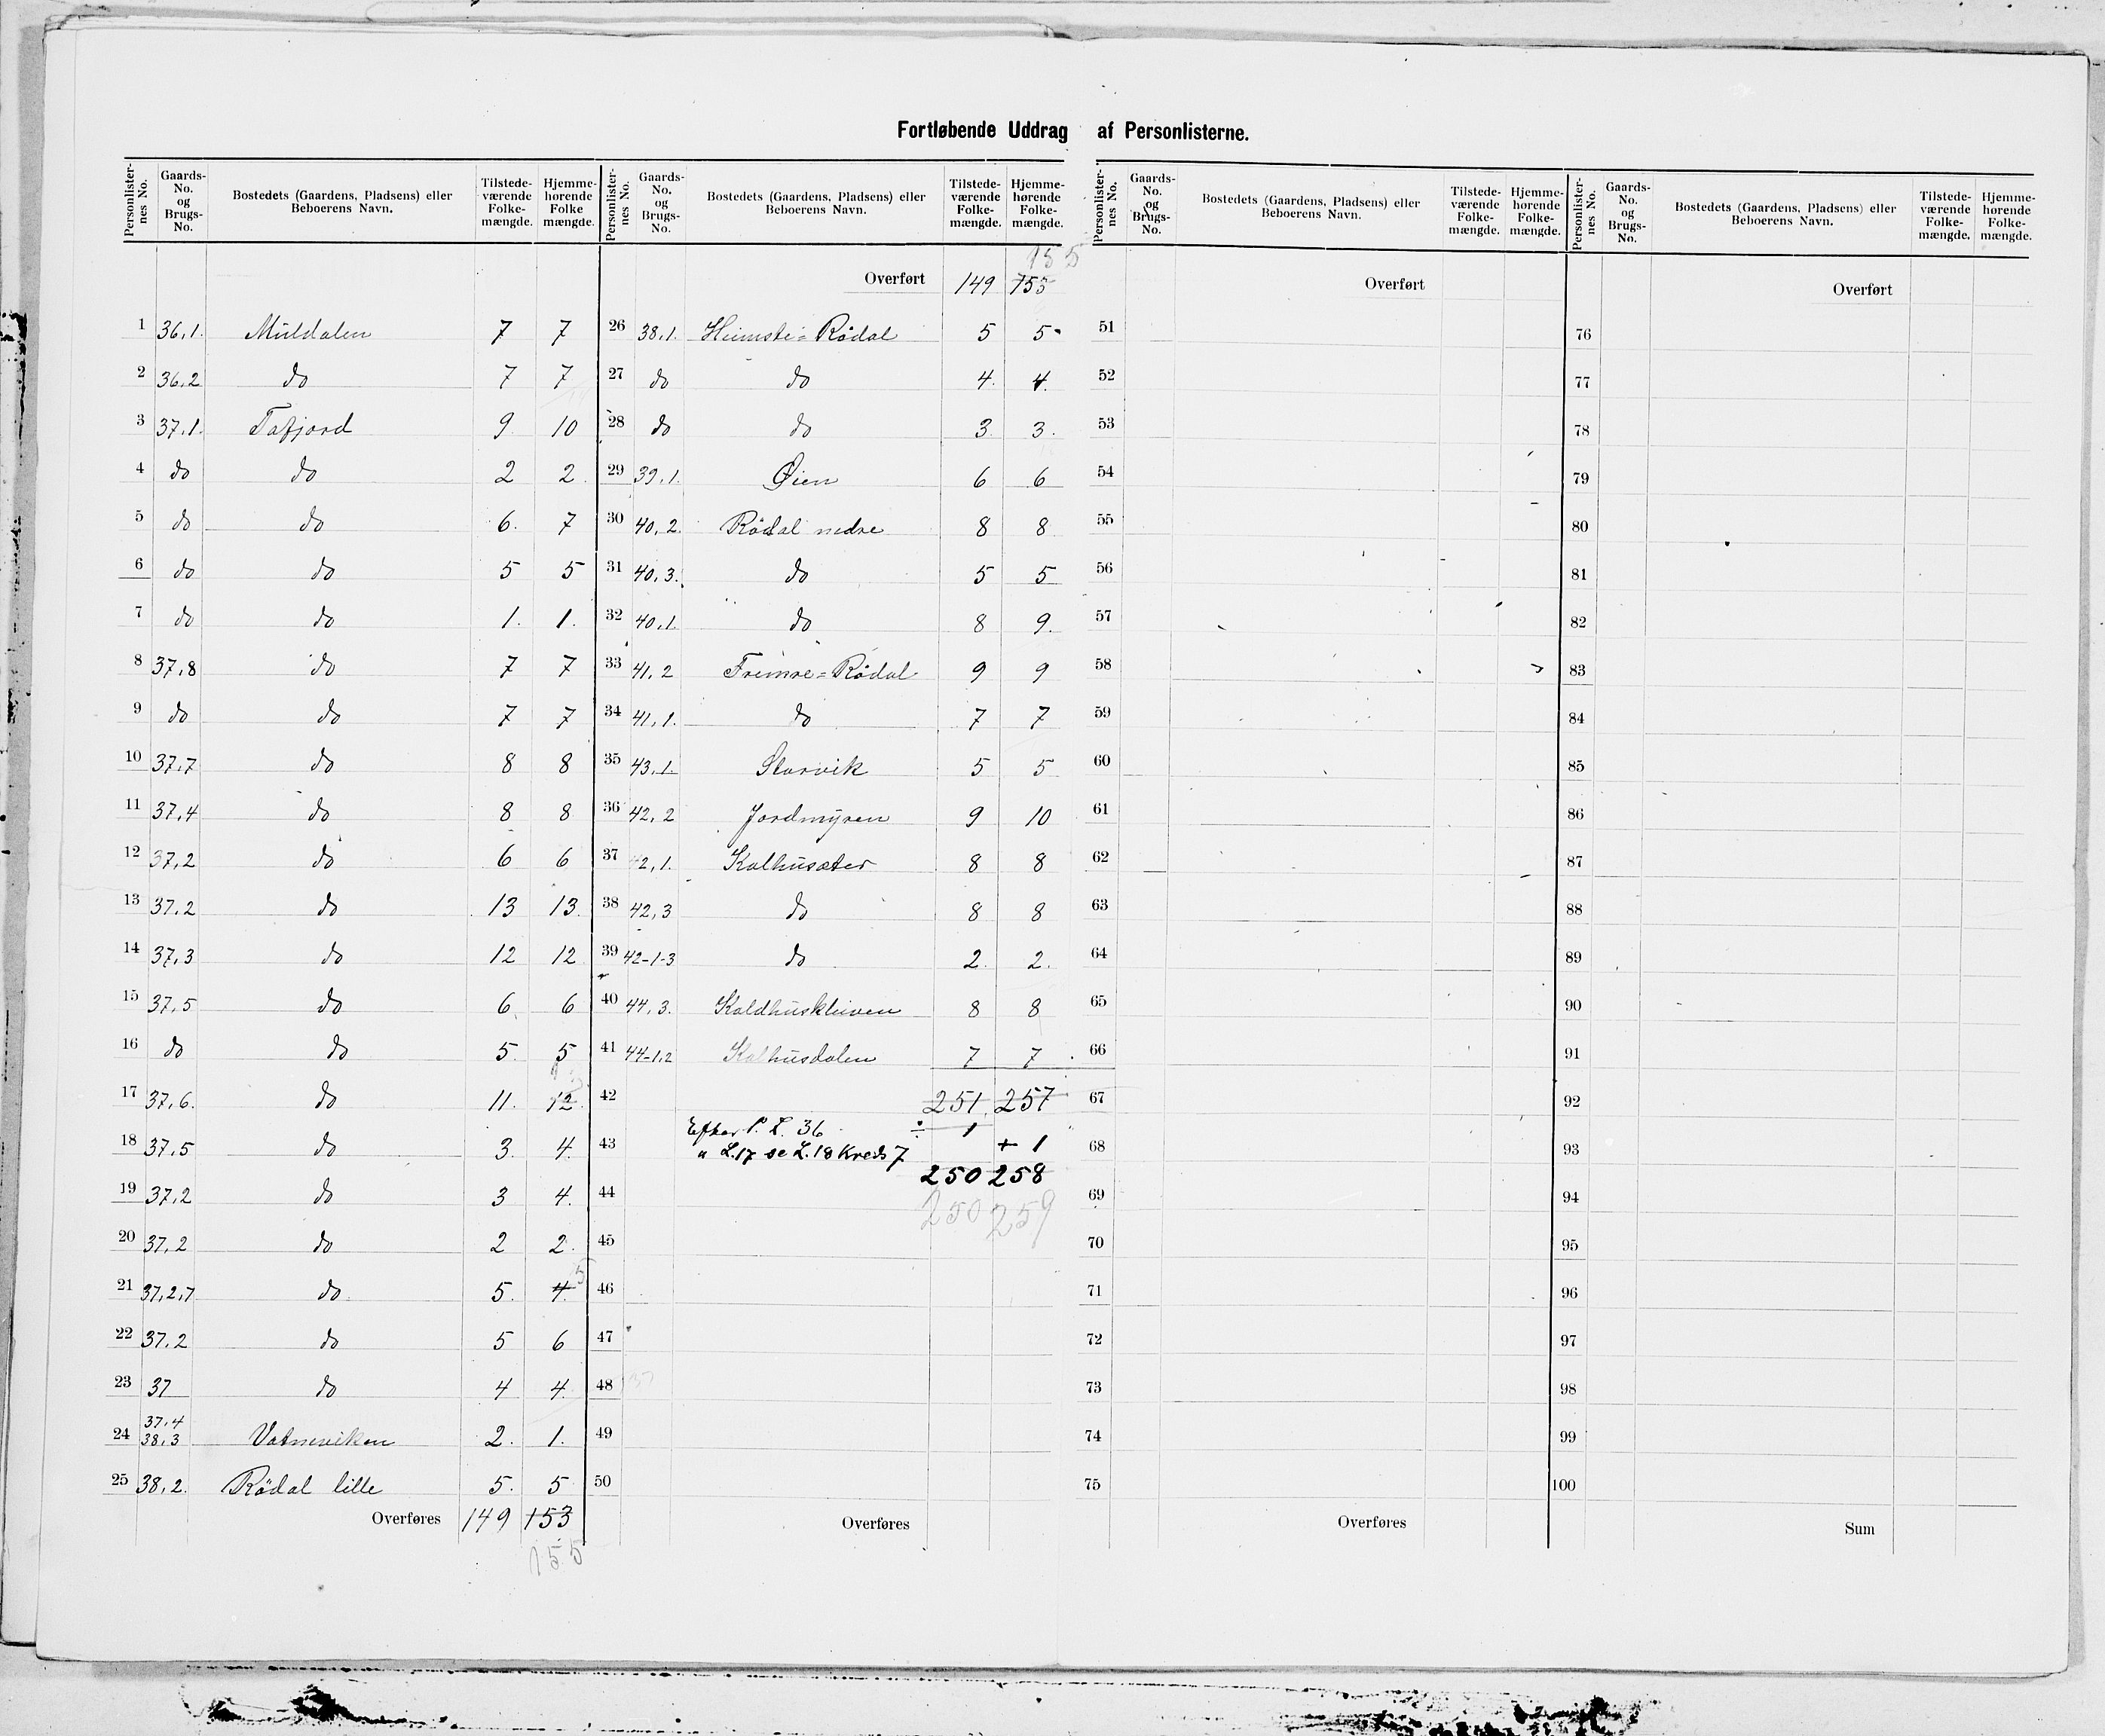 Fortløbende Uddrag af Personlisterne.
Personlister-nes No. Gaards-No. og Brugs-No. Bostedets (Gaardens, Pladsens) eller Beboerens Navn. Tilstede-værende Folke-mængde. Hjemme-hørende Folke mængde.
1 36,1. Muldalen 7 7
2 36,2 do 7 7
3 37,1. Tafjord 9 10
4 do do 2 2
5 do do 6. 7
6 do do 5 5
7 do do 1. 1.
8 37,8 do 7 7
9 do do 7 7
10 37,7 do 8 8
11 37,4 do 8 8
12 37,2 do 6 6
13 37,2 do 13 13
14 37,3 do 12 12
15 37,5 do 6 6
16 do do 5 5
17 37,6. do 11. 12.
18 37,5 do 3. 4.
19 37,2 do 3 4.
20 37,2 do 2 2.
21 37,2,7 do 5. 4. 5
22 37,2 do 5 6
23 37 do 4 4.
24 37,4 38,3 Vatneviken 2. 1.
25 38,2. Rödal lille 5. 5
Overføres 149 153
155
Personlister-nes No. Gaards-No. og Brugs-No. Bostedets (Gaardens, Pladsens) eller Beboerens Navn. Tilstede-værende Folke-mængde. Hjemme-hørende Folke-mængde.
155
Overført 149 155
26 38,1. Heimste=Rødal 5 5
27 do do 4. 4.
28 do do 3. 3.
29 39,1. Øien 6 6
30 40,2. Rödal nedre 8 8
31 40,3. do 5 5
32 40,1. do 8 9.
33 41,2 Fremre=Rødal 9 9
34 41,1. do 7 7
35 43,1. Storvik 5 5
36 42,2 Jordmyren 9 10
37 42,1. Kalhusæter 8 8
38 42,3 do 8 8
39 42-1-3 do 2. 2.
40 44,3. Kaldhuskleiven 8 8
41 44-1,2 Kalhusdalen 7 7
42 251 257
Efter P. L. 36 ÷ 1
43 " L.17 se L.18 Kreds 7 + 1
250 258
44
250 259
45
46
47
48 37
49
50
Overføres
Personlister-nes No. Gaards-No. og Brugs-No. Bostedets (Gaardens, Pladsens) eller Beboerens Navn. Tilstede-værende Folke-mængde. Hjemme-hørende Folke-mængde.
Overført
51
52
53
54
55
56
57
58
59
60
61
62
63
64
65
66
67
68
69
70
71
72
73
74
75
Overføres
Personlister-nes No. Gaards-No. og Brugs-No. Bostedets (Gaardens, Pladsens) eller Beboerens Navn. Tilstede-værende Folke-mængde. Hjemme-hørende Folke-mængde.
Overført
76
77
78
79
80
81
82
83
84
85
86
87
88
89
90
91
92
93
94
95
96
97
98
99
100
Sum